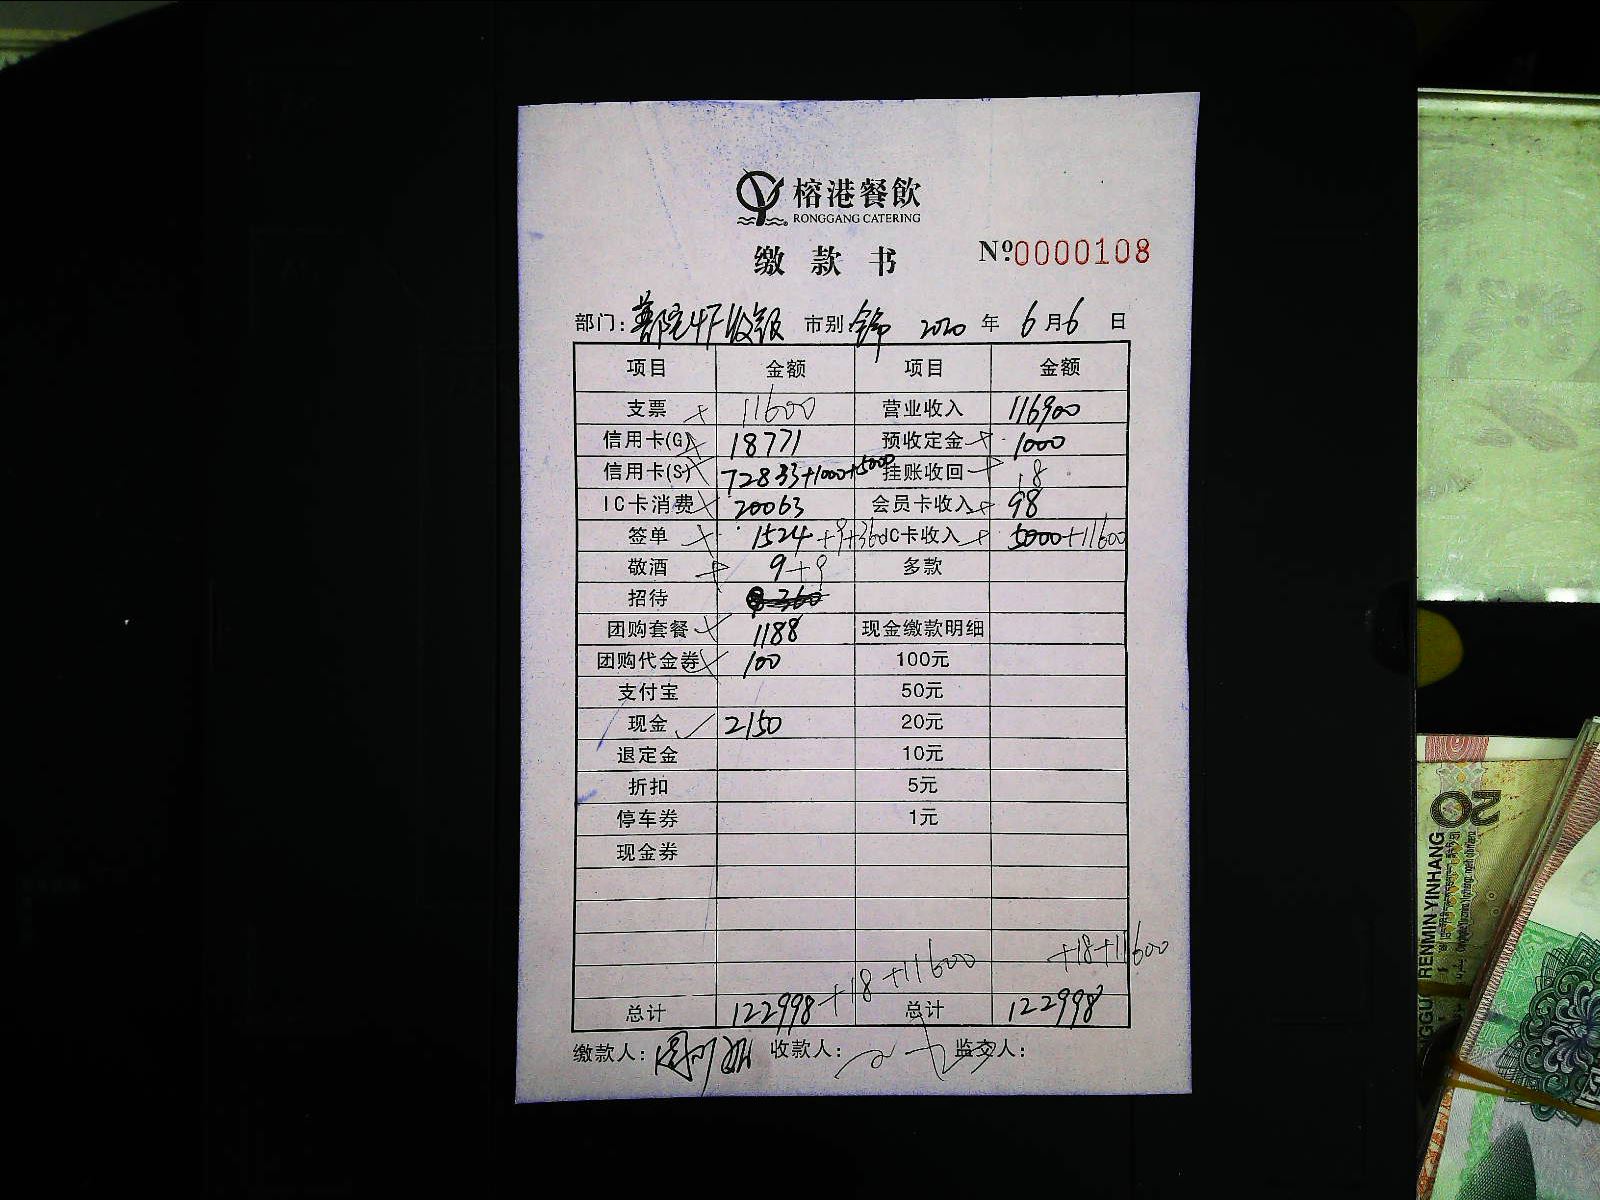 榕港餐飲
RONGGANG CATERING
缴款书 №0000108
部门: 普院 收银 市别 2020 年 6 月 6 日
项目 金额 项目 金额
支票 11600 营业收入 116900
信用卡(G) 18771 预收定金 1000
信用卡(S) 72833+1000+5000 挂账收回 18
IC卡消费 20063 会员卡收入 98
签单 1524+9+360 IC卡收入 5000+11600
敬酒 9+9 多款
招待 360
团购套餐 1188 现金缴款明细
团购代金券 100 100元
支付宝 50元
现金 2150 20元
退定金 10元
折扣 5元
停车券 1元
现金券
+18+11600 +18+11600
总计 122998 总计 122998
缴款人: 收款人: 监交人:
20
RENMIN YINHANG